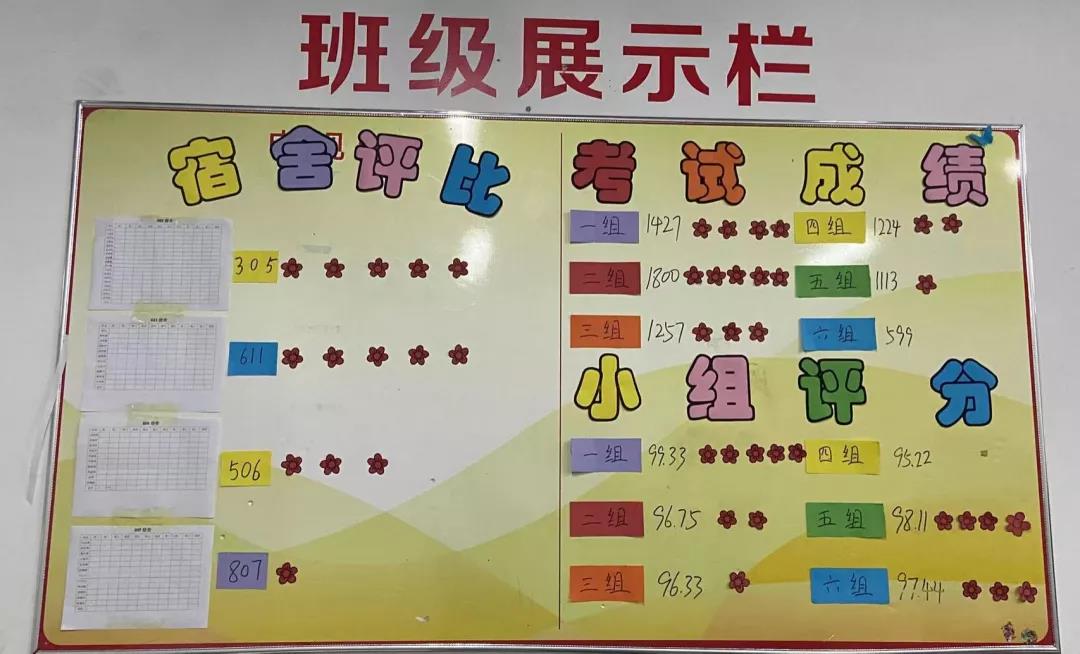 班级展示栏
宿舍评比
305
611
506
807
考试成绩
一组 1427 四组 1224
二组 1800 五组 1113
三组 1257 六组 599
小组评分
一组 99.33 四组 95.22
二组 96.75 五组 98.11
三组 96.33 六组 97.44